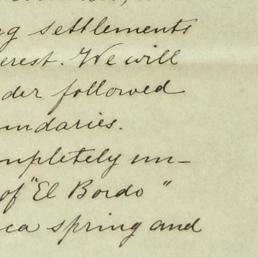 settlements
erest. We will
der followed
undaries.
mpletely un-
of "El Bordo"
ca spring and